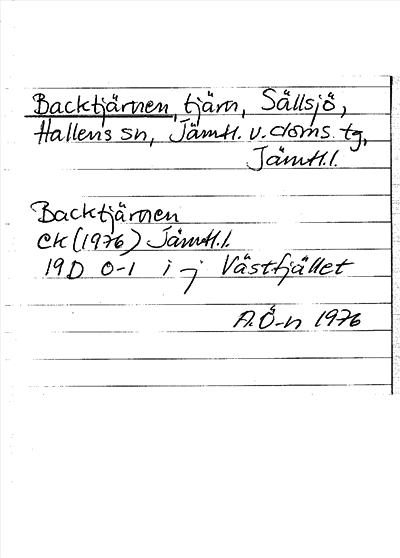 Backtjärnen, tjärn, Sällsjö,
Hallens sn, Jämtl. v. doms. tg,
Jämtl. l.
Backtjärnen
CK (1976) Jämtl. l.
19D 0-1 i j Västfjället
A.Ö-n 1976